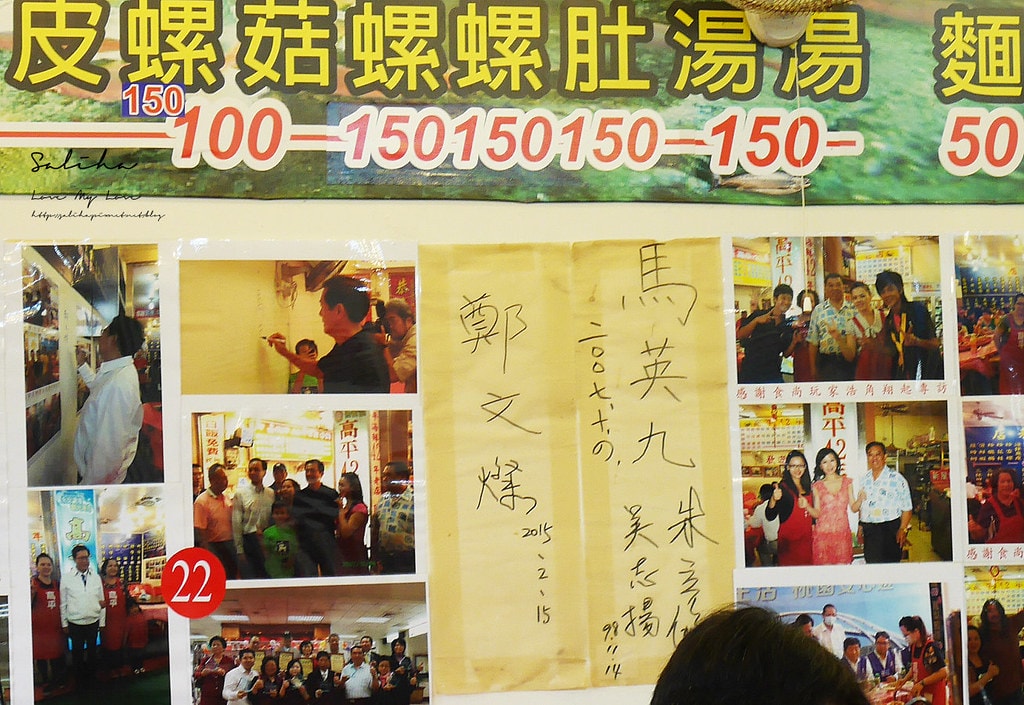 皮螺菇螺螺肚湯湯 麵
150
100 150 150 150 150 50
Saliha
Love My Love
鄭文燦
2015.2.15
馬英九
二〇〇七、十、
朱立倫
吳志揚
99.11.14
感謝食尚玩家浩角翔起專訪
高平42年
高平42年
高平42
22
高平
感謝食尚